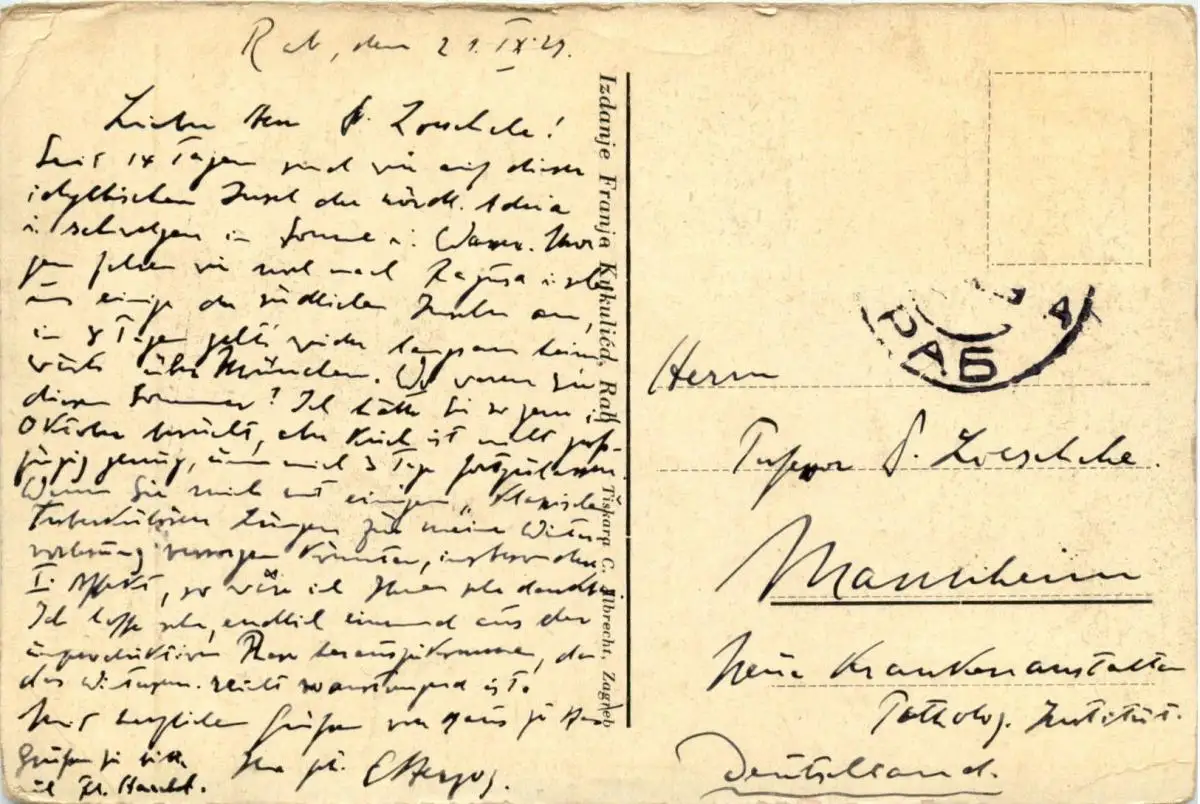 Rab, den 21.IX.29.
Lieber Herr P. Loeschcke!
Seit 14 Tagen sind wir auf dieser
idyllischen Insel der nördl. Adria
u. schwelgen in Sonne u. Wasser. Mor
gen fahren wir noch nach Ragusa u. sehen
uns einige der südlichen Inseln an,
in 8 Tagen geht's wieder langsam heim
wärts über München. Wo waren Sie
diesen Sommer? Ich hätte Sie so gern im
Oktober besucht, aber Koch ist nicht groß-
zügig genug, um mich 3 Tage fortzulassen.
Wenn Sie mich mit einigen "klassischen
tuberkulösen Lungen für meine Winter
vorlesung versorgen könnten, insbesondere
I. Affekt, so wäre ich Ihnen sehr dankbar
Ich hoffe sehr, endlich einmal aus der
unproduktiven Phase herauszukommen, da
das so anstrengend ist.
Mit herzlichen Grüßen von Haus zu Haus
Ihr
E Herzog.
Grüßen Sie bitte
Izdanje Franja Kukulićd, Rab
Tiskara C. Albrecht, Zagreb
РАБ
Herrn
Professor P. Loeschcke.
Mannheim
Neue Krankenanstalten
Patholog. Institut.
Deutschland.